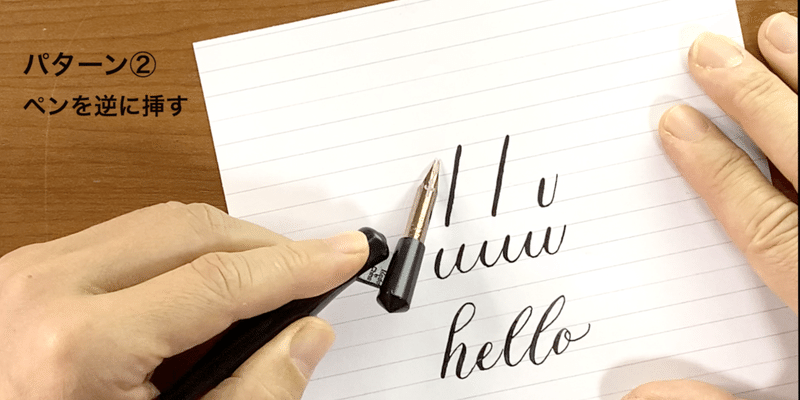 パターン②
ペンを逆に挿す
l l u
uuuu
hello